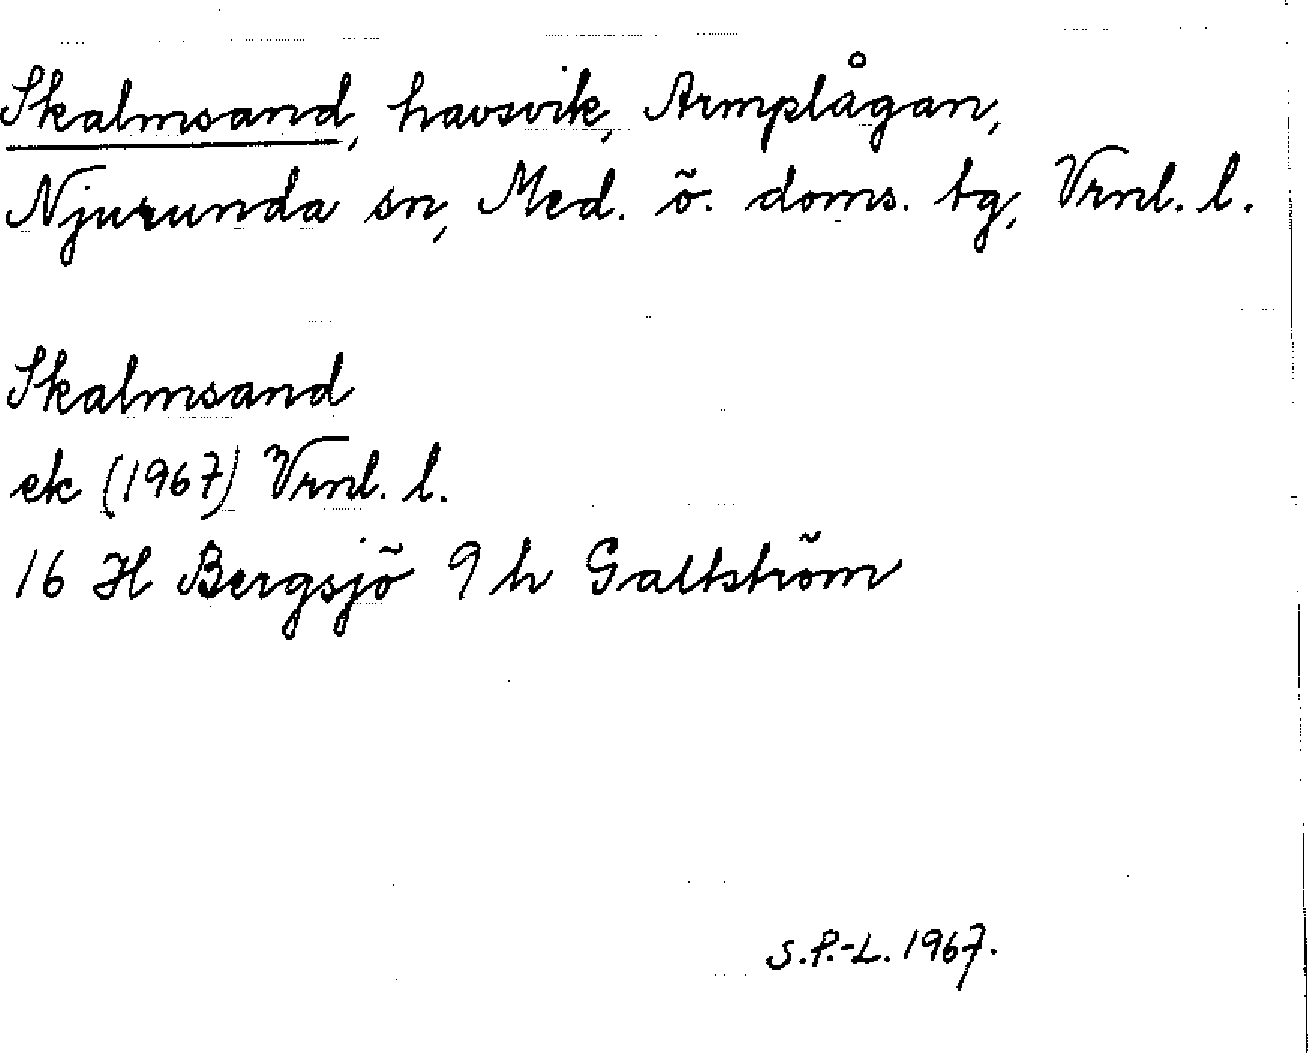 Skalmsand, havsvik, Armplågan,
Njurunda sn, Med. ö. doms. tg, Vrnl. l.
Skalmsand
ek (1967) Vrnl. l.
16 H Bergsjö 9 h Galtström
S.P.-L. 1967.